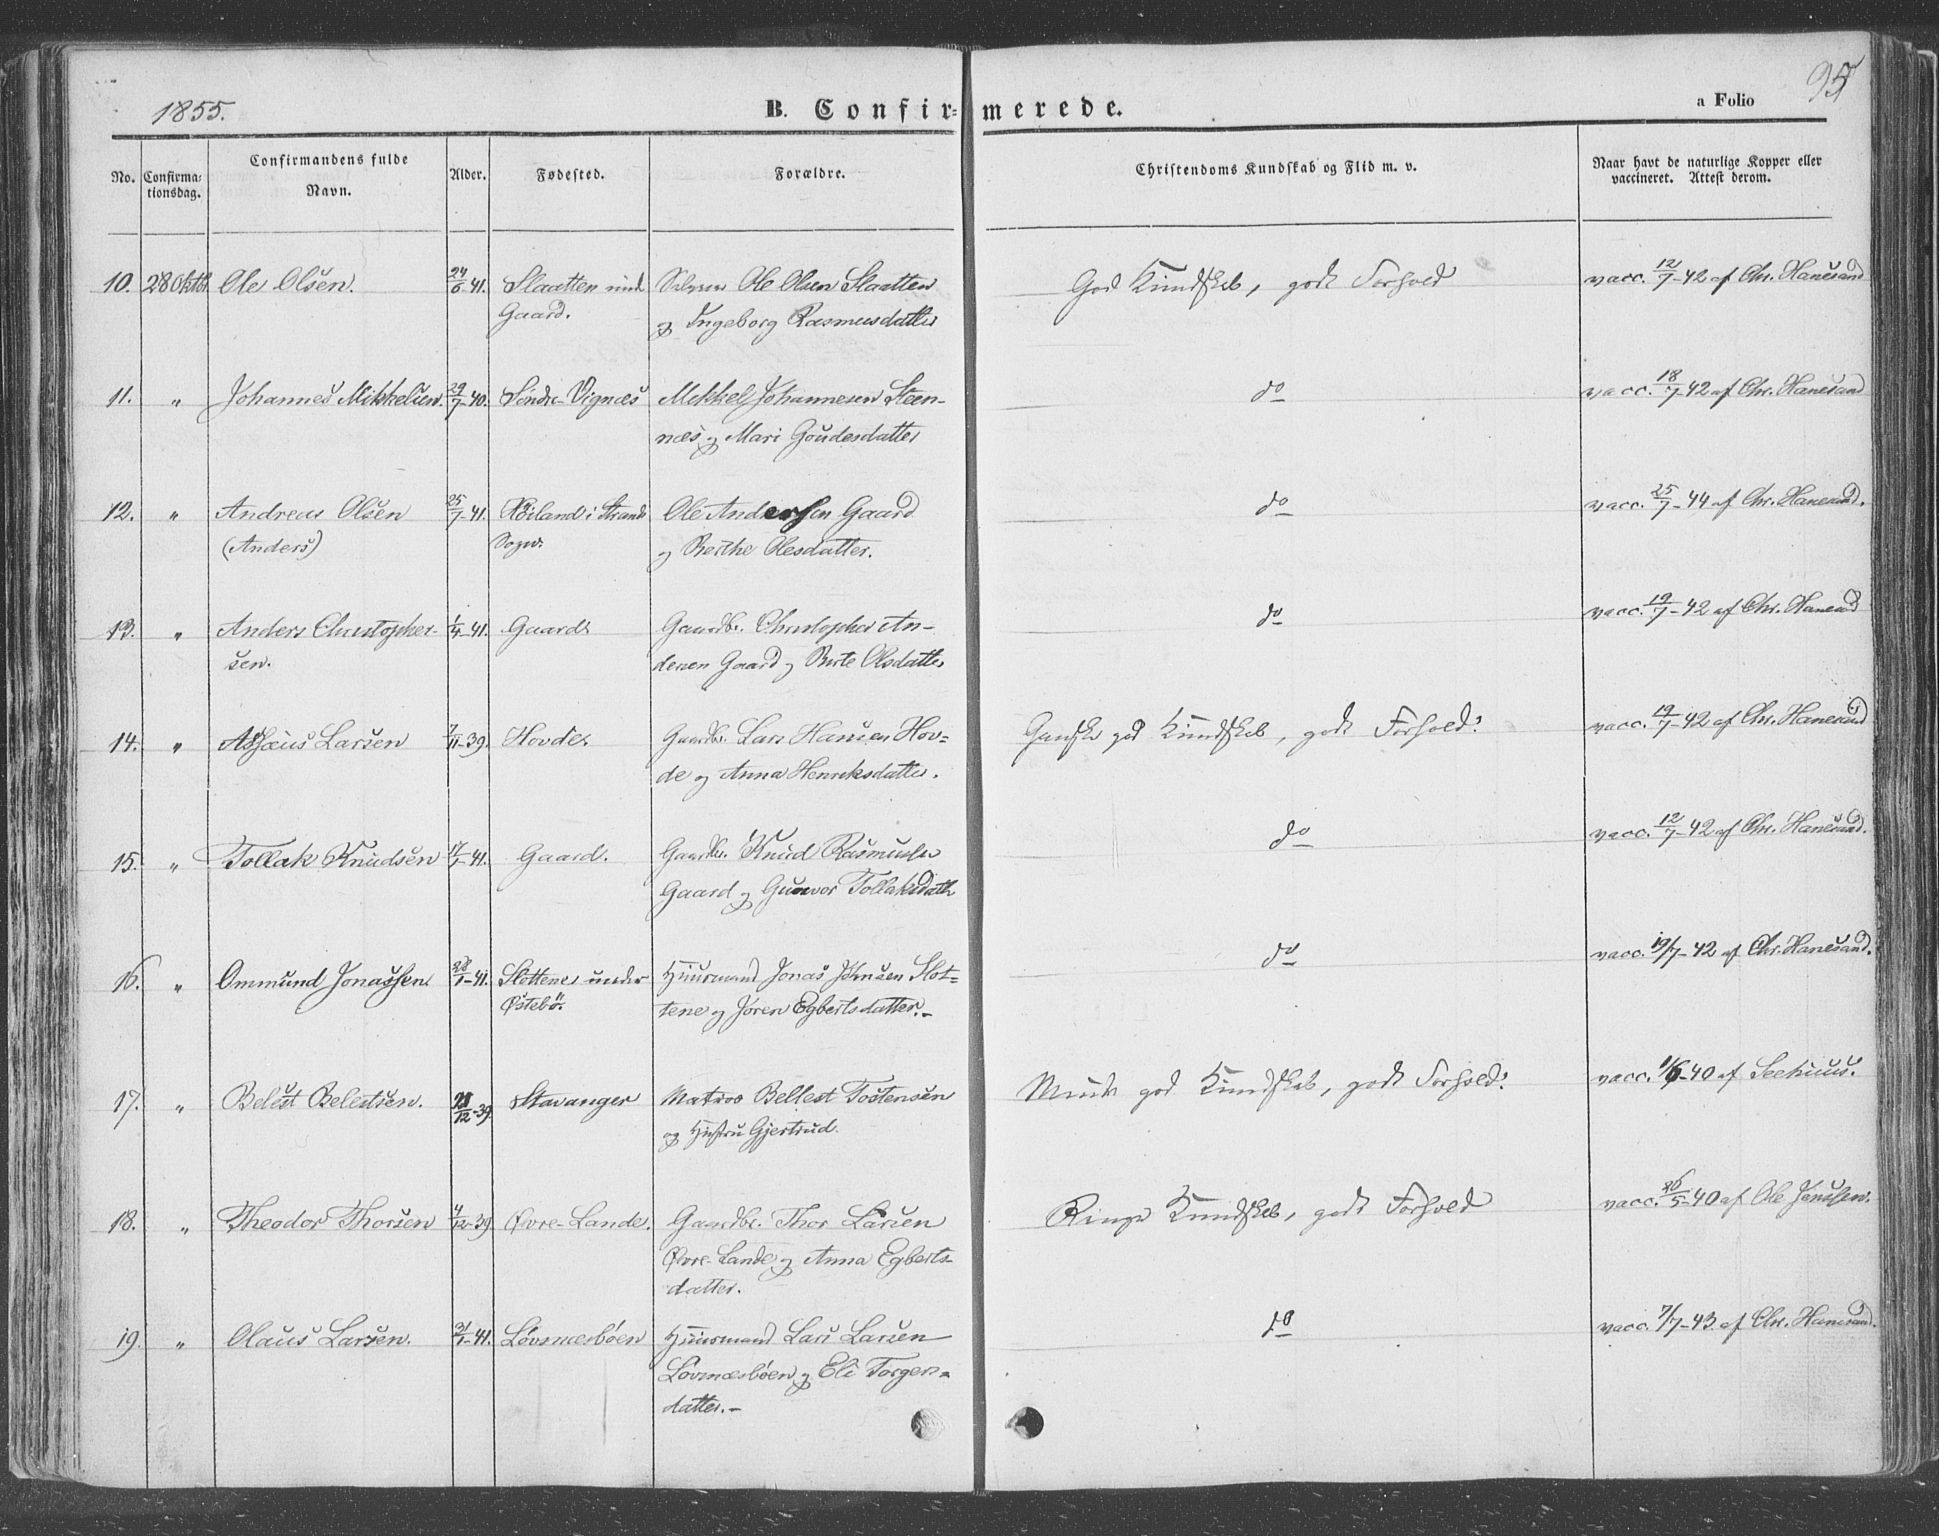 1855.
B. Confirmerede.
a Folio 95
No.
Confirmationsdag.
Confirmandens fulde Navn.
Alder.
Fødested.
Forældre.
Christendoms Kundskab og Flid m. v.
Naar havt de naturlige Kopper eller vaccineret. Attest derom.
10. 28 Oktbr. Ole Olsen. 24/6-41. Slaatten und. Ole Olsen Slaatten God Kundskab, godt Forhold vacc. 12/7-42 af Chr. Hanesand
Gaard. og Ingeborg Rasmusdatter
11. " Johannes Mikkelsen. 29/7-40. Søndre-Vignæs Mikkel Johannesen Steen- do vacc. 18/7-42 af Chr. Hanesand
næs og Mari Goudesdatter
12. " Andreas Olsen 25/7-41. i Strands Ole Andersen Gaard do vacc. 25/7-44 af Chr. Hanesand.
(Anders) Sogn. og Berthe Olesdatter.
13. " Anders Christopher- 1/4-41. Gaard Gaardbr. Christopher An- do vacc. 19/7-42 af Chr. Hanesand
sen. dersen Gaard og Berte Olsdatter
14. " Larsen 7/11-39. Hovde Gaardbr. Lars Hansen Hov- Ganske god Kundskab, godt Forhold. vacc. 19/7-42 af Chr. Hanesand
de og Anna Henriksdatter.
15. " Tollak Knudsen -41. Gaard. Gaardbr. Knud Rasmusen do vacc. 12/7-42 af Chr. Hanesand.
Gaard og Gunvor Tollaksdattr
16. " Ommund Jonassen 28/1-41. Slottene under Huusmand Jonas Johnsen Slot- do vacc. 19/7-42 af Chr. Hanesand.
Østebö. tene og Jøren Egbertsdatter.-
17. " Belest Belestsen. /12-39 Stavanger Matros Bellest Tostensen Mindre god Kundskab, godt Forhold. vacc. 1/6-40 af Seehuus.
og Hustru Gjertrud.
18. " Theodor Thorsen 4/12-39 Øvre-Lande. Gaardbr. Thor Larsen Ringe Kundskab, godt Forhold vacc. 26/5-40 af Ole Jensen.
Øvre-Lande og Anna Egberts-
datter.
19. " Olaus Larsen. -41. Løvsnæsbøen Huusmand Lars Larsen do vacc. 7/7-43. af Chr. Hanesand.
Løvsnæsbøen og Eli Torgers-
datter.-